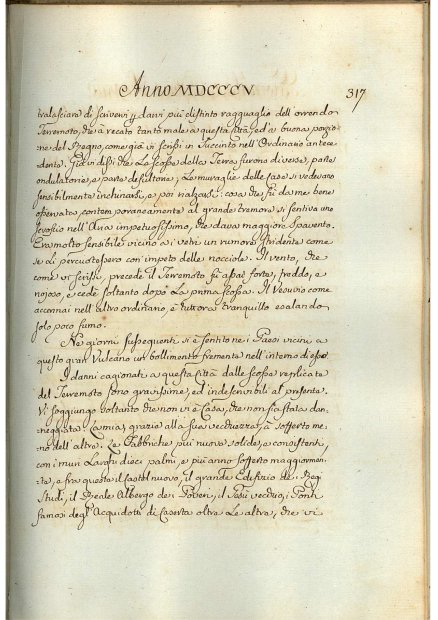 Anno MDCCCV.
317
tralasciare di scrivervi, y darvi piu distinto ragguaglio dell'orrendo
Terremoto, che à recato tanto male a questa Città, ed a buona porzio
ne del Regno, come già vi scrissi in succinto nell'Ordinario antece
dente. Già vi dissi che Le Scosse della Terra furono diverse, parte
ondulatorie, e parte di sultorie, Le muraglie delle Case si vedevano
sensibilmente inchinarsi, e poi rialzarsi: cosa che fù da me bene
osservata, contemporaneamente al grande tremore si sentiva uno
scroscio nell'Aria impetuosissimo, che dava maggior Spavento.
Era molto sensibile vicino a i vetri un rumore stridente come
se li percuotessero con impeto delle nocciole. Il vento, che
come vi scrissi, precede il Terremoto fù assai forte, freddo, e
nojoso, e cedè soltanto dopo La prima scossa. Il Vesuvio come
accennai nell'altro ordinario, è tuttora tranquillo esalando
solo poco fumo.
Ne giorni susseguenti si è sentito ne i Paesi vicini a
questo gran Vulcano un bollimento fremente nell'interno di esso.
I danni cagionati a questa Città dalle scosse replicate
del Terremoto sono gravissimi, ed indescrivibili al presente.
Vi soggiungo soltanto che non vi è Casa, che non sia stata dan
neggiata. La mia, grazie alla sua vecchiezza, à sofferto me
no dell'altre. Le Fabbriche piu nuove solide, e consistenti,
con i muri Larghi dieci palmi, e più anno sofferto maggiormen
te, e fra queste il Castel nuovo, il grande Edifizio de i Regj
Studj, il Reale Albergo de i Poveri, il Gesù vecchio, i Ponti
famosi degl'Acquidotti di Caserta oltre Le altre, che vi